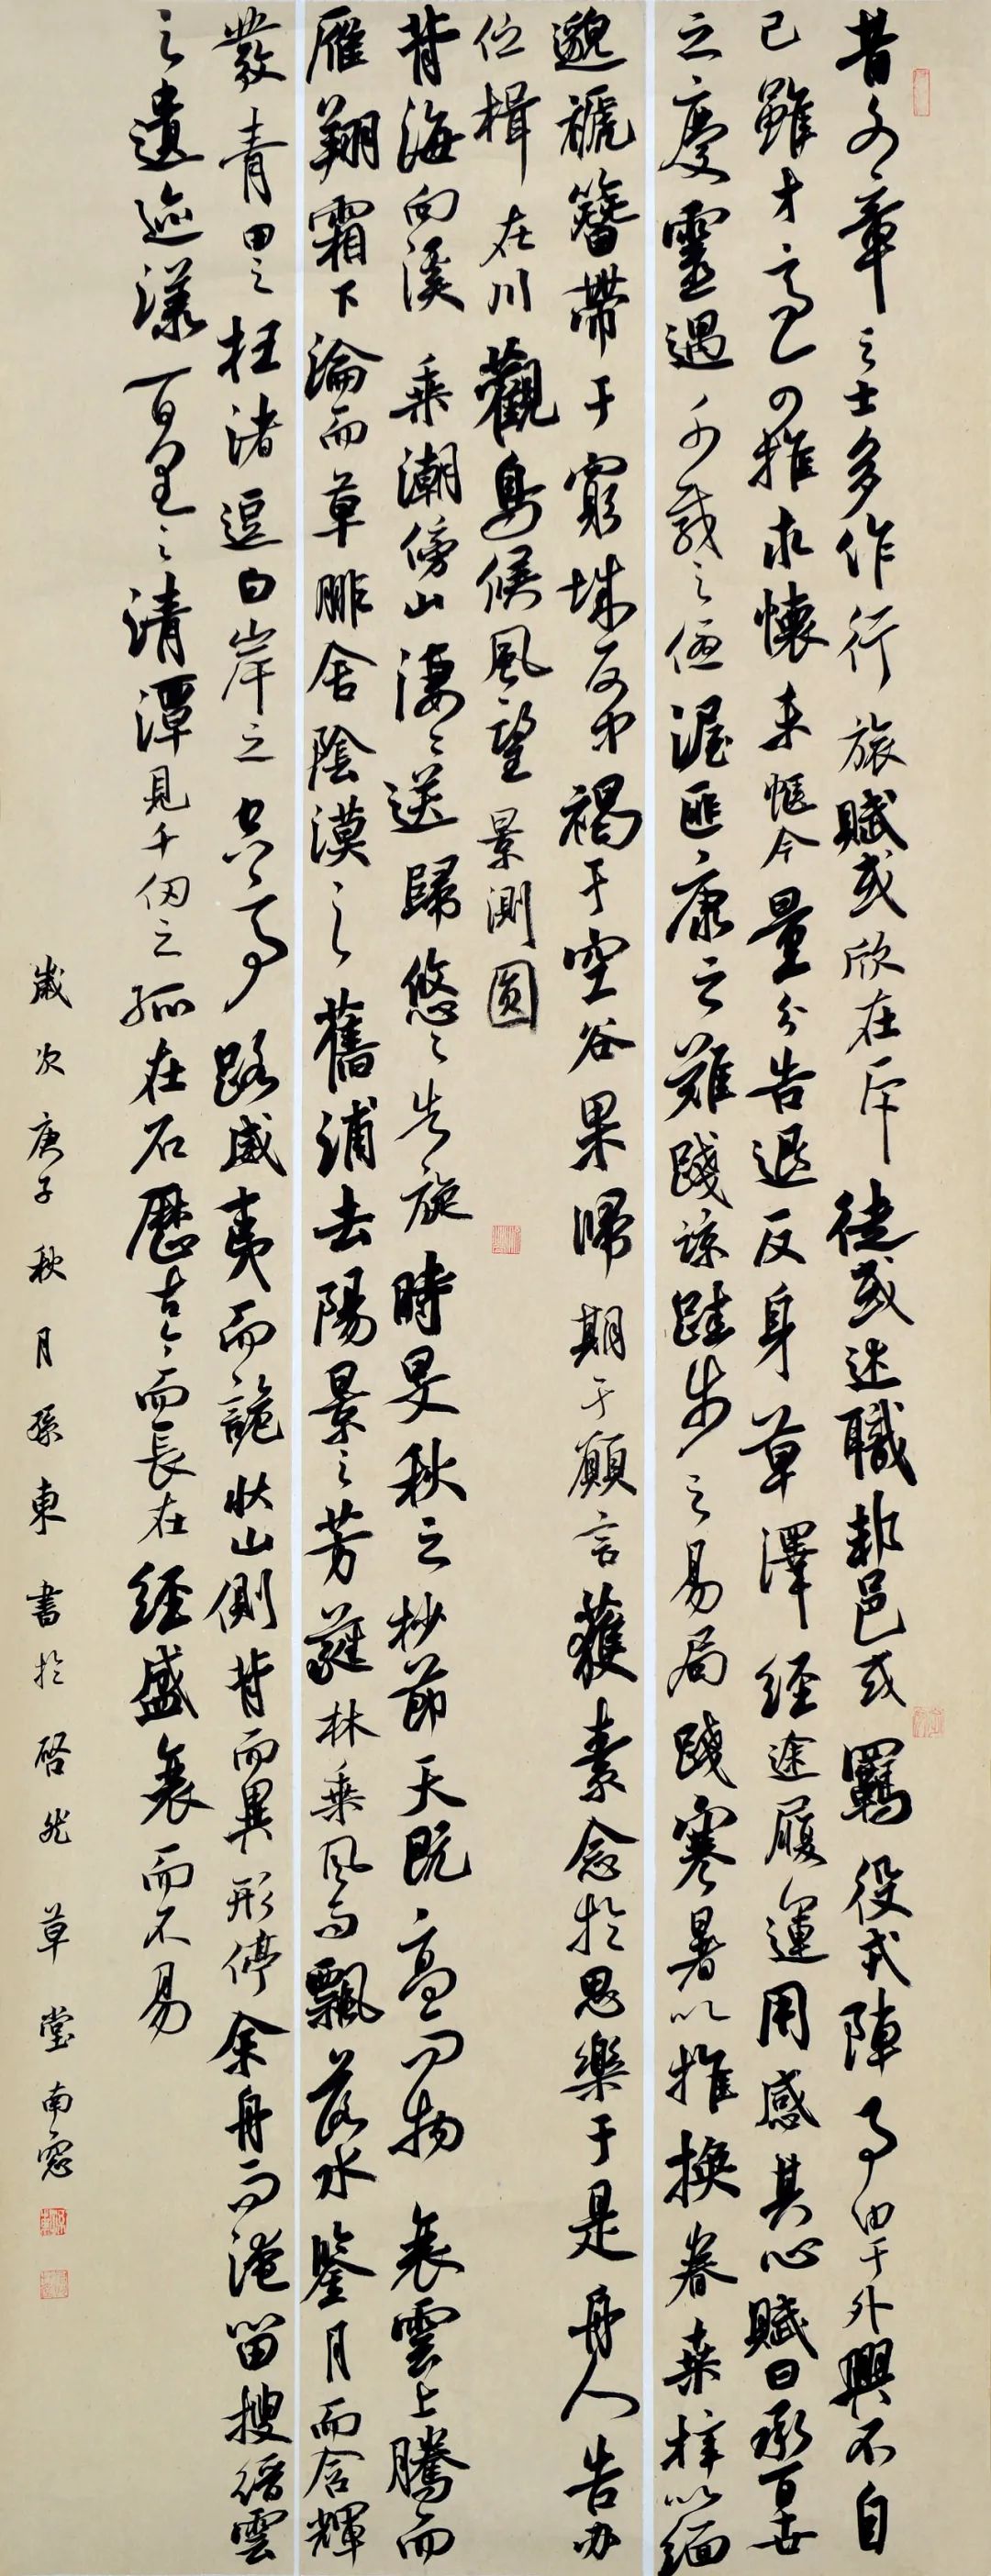 昔文章之士多作行旅賦或欣在斥徒或述職邦邑或羈役戎陣事由于外興不自
已雖才高可推求懷未愜今量分告退反身草澤經途履運用感其心賦曰承百世
之慶靈遇千載之優渥匪康之難踐諒跬步之易局踐寒暑以推換眷桑梓以緬
邈褫簪帶于窮城反巾褐于空谷果歸期于願言獲素念於思樂于是舟人告办
位楫在川觀鳥候風望景測圆
背海向溪乘潮傍山淒淒送歸悠悠告旋時旻秋之杪節天既高而物衰雲上騰而
雁翔霜下淪而草腓舍陰漠之舊浦去陽景之芳蕤林乘风而飄落水鑒月而含輝
發青田之枉渚逗白岸之空亭路威夷而詭狀山側背而異形停余舟而淹留搜縉雲
之遺迹漾百里之清潭見千仞之孤在石歷古今而長在經盛衰而不易
歲次庚子秋月孫東書於啓然草堂南窓